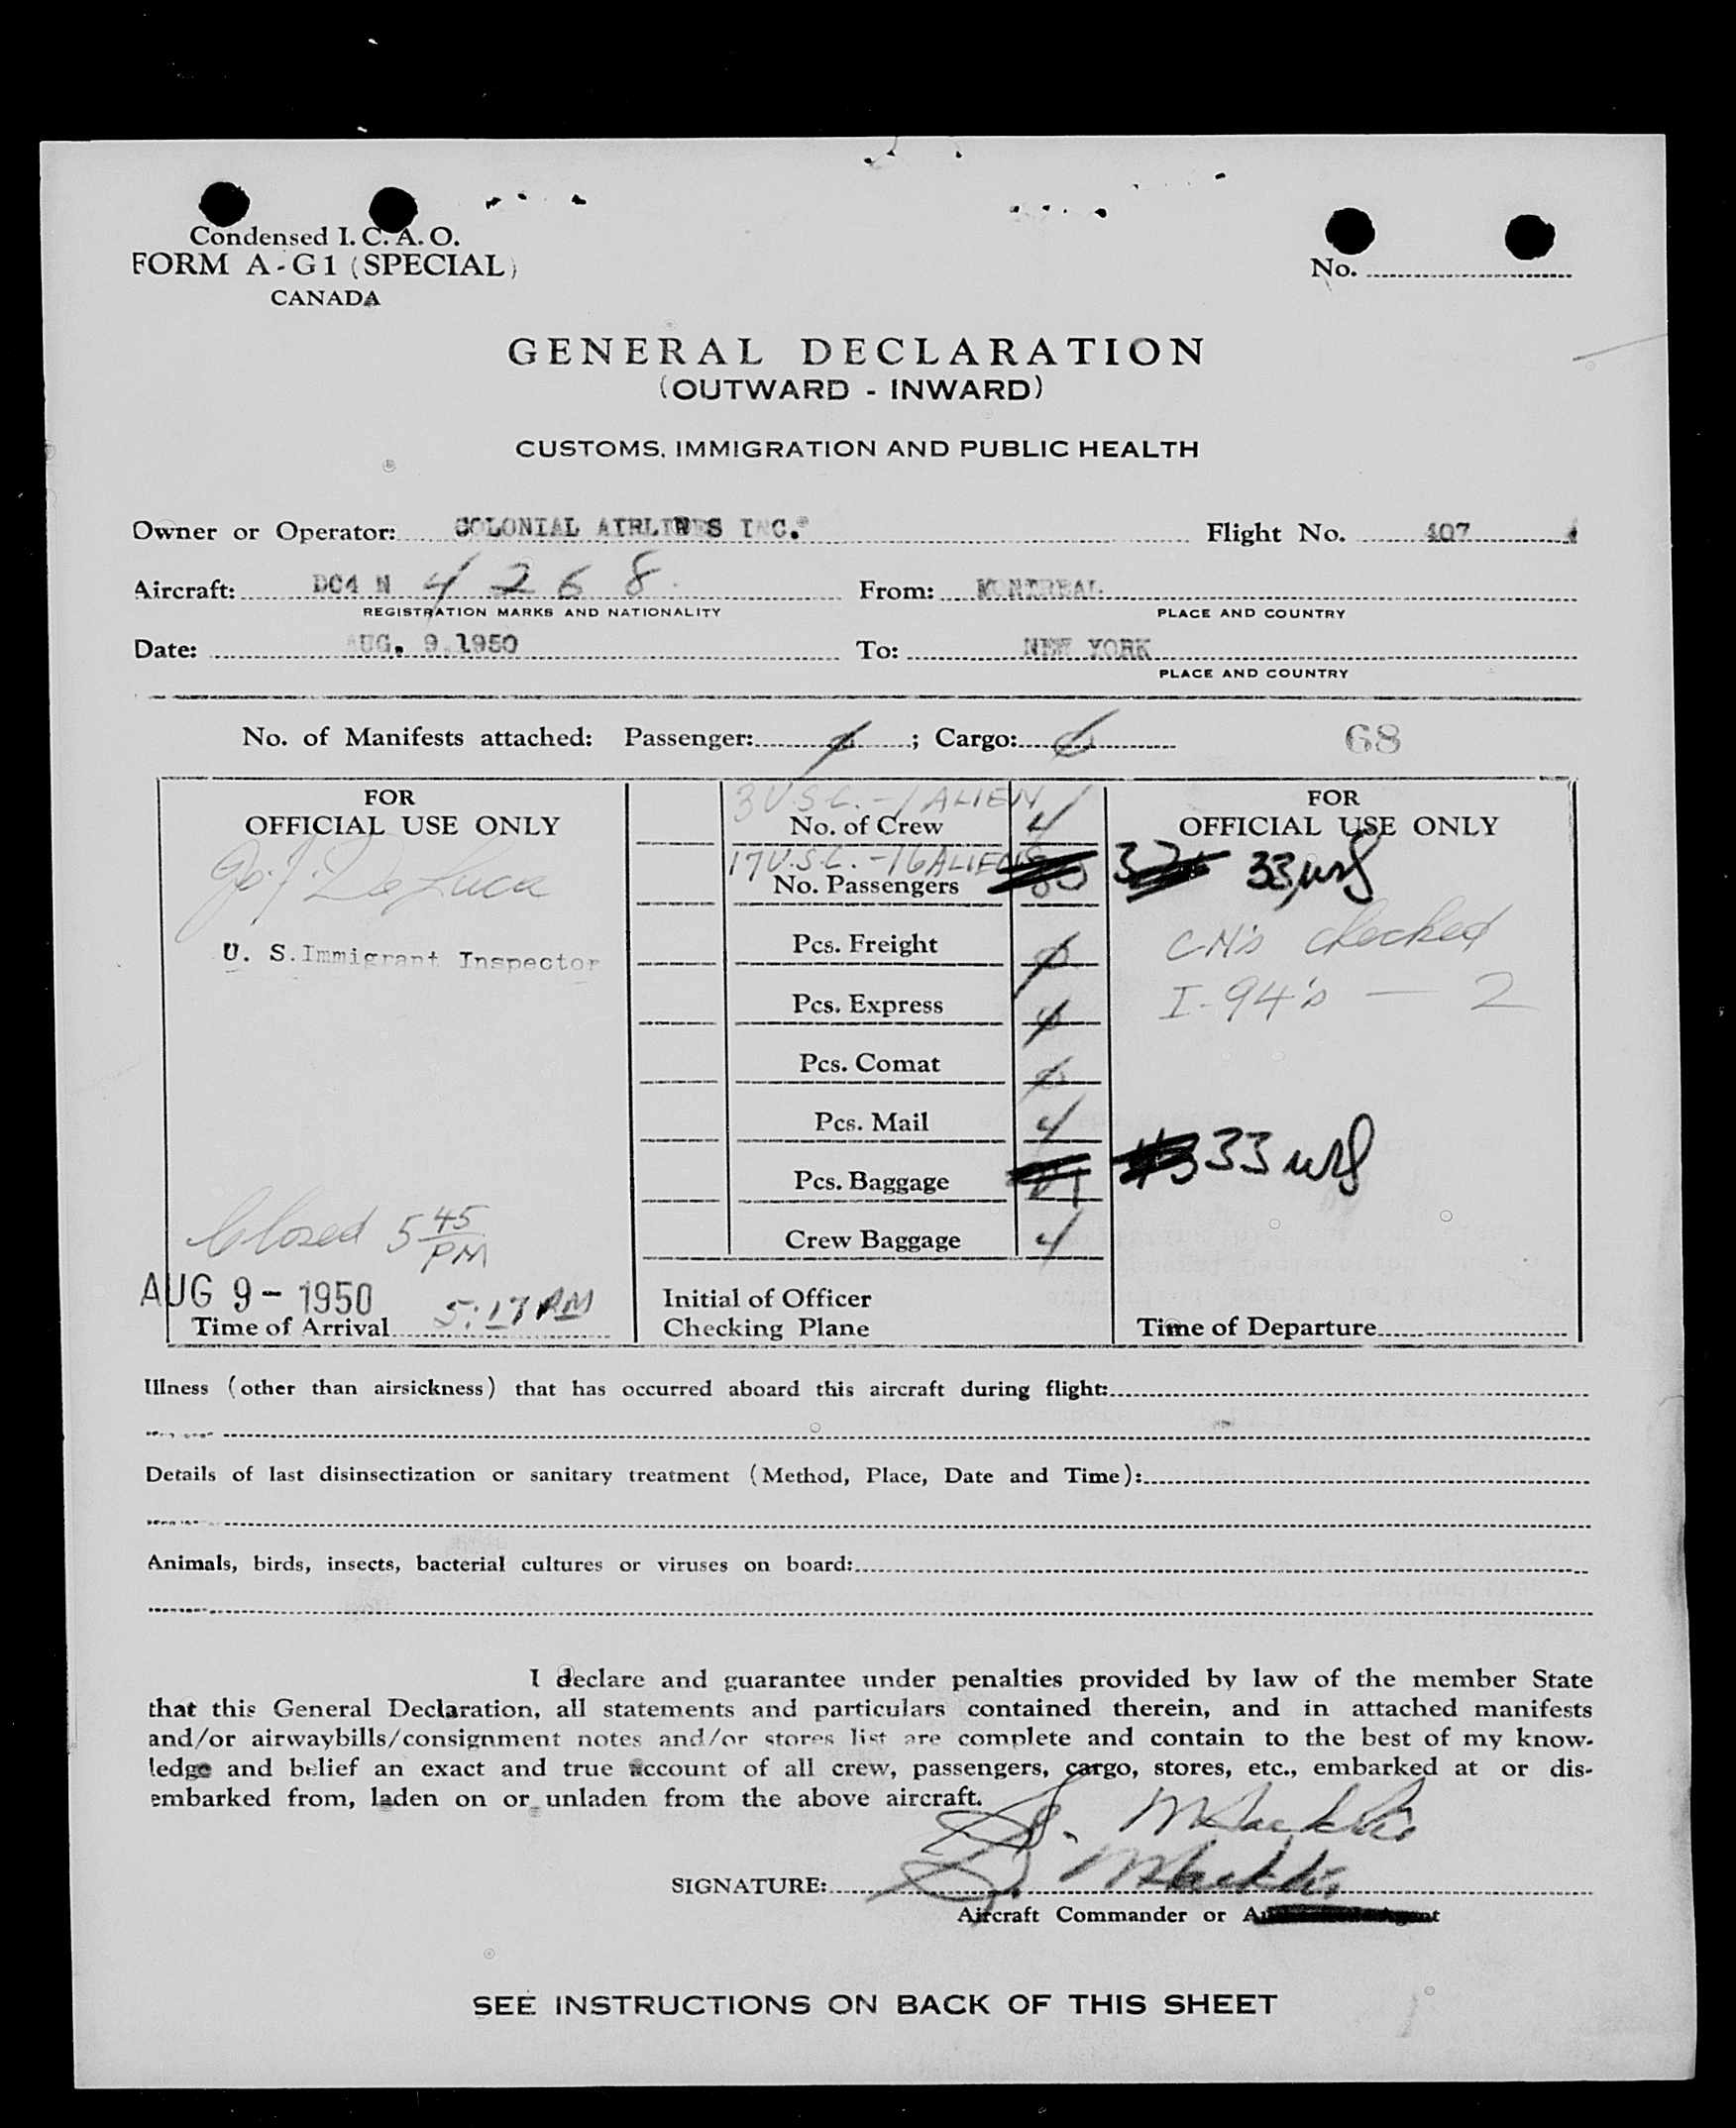 Condensed I. C. A. O.
FORM A-G1 (SPECIAL)
CANADA
No.
GENERAL DECLARATION
(OUTWARD - INWARD)
CUSTOMS, IMMIGRATION AND PUBLIC HEALTH
Owner or Operator: COLONIAL AIRLINES INC. Flight No. 407
Aircraft: DC4 N 4268 From: MONTREAL
REGISTRATION MARKS AND NATIONALITY PLACE AND COUNTRY
Date: AUG. 9 1950 To: NEW YORK
PLACE AND COUNTRY
No. of Manifests attached: Passenger: ; Cargo: 68
FOR
OFFICIAL USE ONLY
De Luca
U. S. Immigrant Inspector
Closed 5 45 PM
AUG 9 - 1950
Time of Arrival 5:17 PM
3 U.S.C. - 1 ALIEN
No. of Crew 4
17 U.S.C. - 16 ALIENS
No. Passengers
Pcs. Freight
Pcs. Express
Pcs. Comat
Pcs. Mail 4
Pcs. Baggage
Crew Baggage 4
Initial of Officer
Checking Plane
FOR
OFFICIAL USE ONLY
33
checked
I-94's — 2
33
Time of Departure
Illness (other than airsickness) that has occurred aboard this aircraft during flight:
Details of last disinsectization or sanitary treatment (Method, Place, Date and Time):
Animals, birds, insects, bacterial cultures or viruses on board:
I declare and guarantee under penalties provided by law of the member State
that this General Declaration, all statements and particulars contained therein, and in attached manifests
and/or airwaybills/consignment notes and/or stores list are complete and contain to the best of my know-
ledge and belief an exact and true account of all crew, passengers, cargo, stores, etc., embarked at or dis-
embarked from, laden on or unladen from the above aircraft.
SIGNATURE:
Aircraft Commander or
SEE INSTRUCTIONS ON BACK OF THIS SHEET